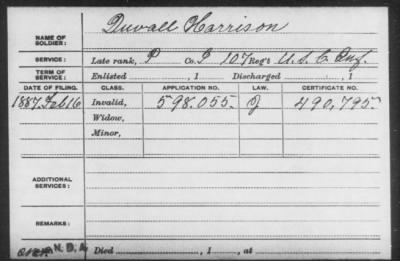 NAME OF SOLDIER: Duvall Harrison
SERVICE: Late rank, P Co. I 107 Reg't U.S.C. Inf.
TERM OF SERVICE: Enlisted , 1 Discharged , 1
DATE OF FILING. CLASS. APPLICATION NO. LAW. CERTIFICATE NO.
1887. Feb 16 Invalid, 598.055. J 490,795
Widow,
Minor,
ADDITIONAL SERVICES:
REMARKS:
N.D.A. Died , 1 , at